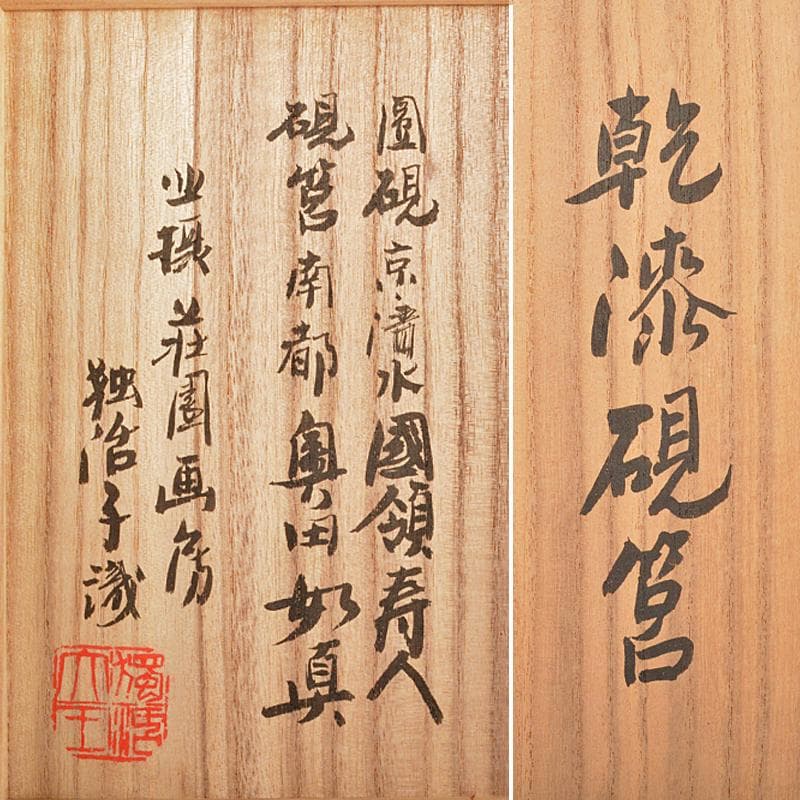 乾漆硯筥
圓硯京清水國領寿人
硯筥南都奥田如真
北摂荘園画房
独活子識
獨活
大王